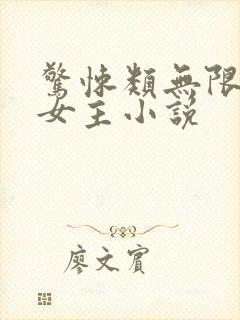 驚悚類無限
女主小說
廖文賓